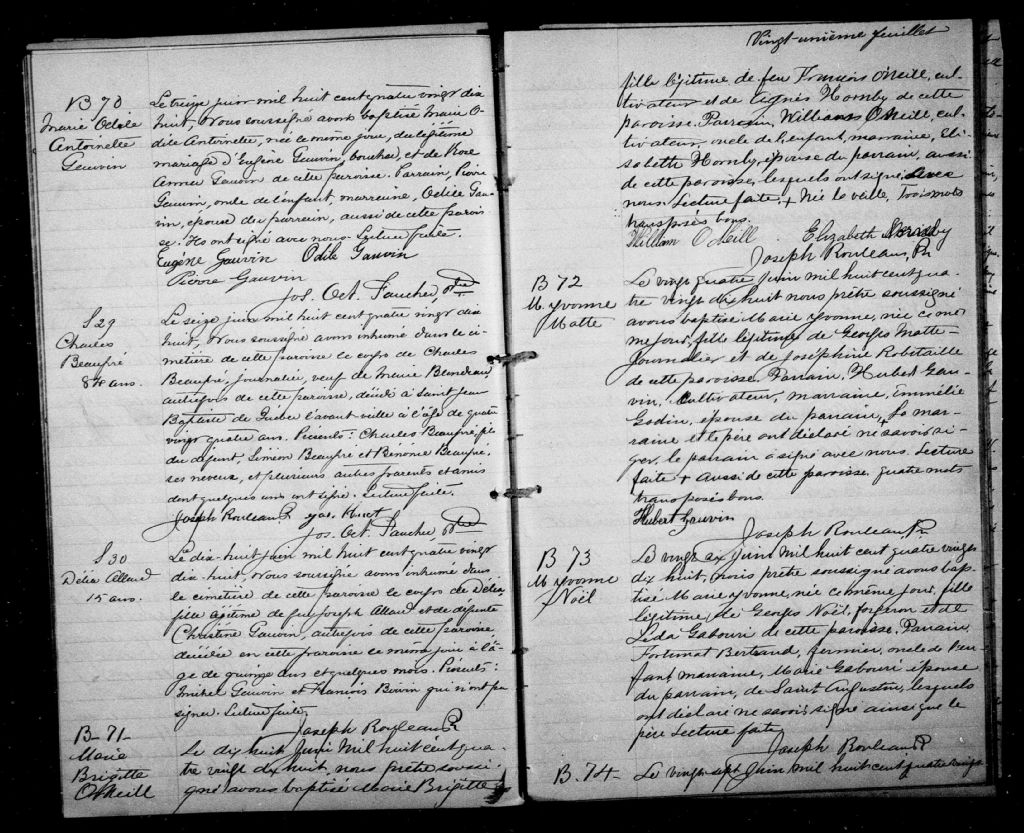 B 70
Marie Odile
Antoinette
Gauvin
Le treize juin mil huit cent quatre vingt dix
huit, Nous soussigné avons baptisé Marie O-
dile Antoinette, née ce même jour, du légitime
mariage d'Eugène Gauvin, boucher, et de Rose
Anna Gauvin de cette paroisse. Parrain, Pierre
Gauvin, oncle de l'enfant, marraine, Odile Gau-
vin, épouse du parrain, aussi de cette parois-
se. Ils ont signé avec nous. Lecture faite.
Eugène Gauvin Odile Gauvin
Pierre Gauvin
Jos. Oct. Faucher, Ptre
S 29
Charles
Beaupré
84 ans.
Le seize juin mil huit cent quatre vingt dix
huit, Nous soussigné avons inhumé dans le ci-
metière de cette paroisse le corps de Charles
Beaupré, journalier, veuf de Marie
autrefois de cette paroisse, décédé à Saint Jean
Baptiste de Québec l'avant-veille à l'âge de quatre
vingt quatre ans. Présents: Charles Beaupré, fils
du défunt, Siméon Beaupré et Beaupré,
ses neveux, et plusieurs autres parents et amis
dont quelques uns ont signé. Lecture faite.
Joseph Rouleau Ptr Huot
Jos. Oct. Faucher, Ptre
S 30
Délia Allard
15 ans.
Le dix-huit juin mil huit cent quatre vingt
dix-huit, Nous soussigné avons inhumé dans
le cimetière de cette paroisse le corps de Délia
fille légitime de feu Joseph Allard et de défunte
Christine Gauvin, autrefois de cette paroisse,
décédée en cette paroisse ce même jour à l'â-
ge de quinze ans et quelques mois. Présents:
Michel Gauvin et François Boivin qui n'ont pu
signer. Lecture faite.
Joseph Rouleau Ptr
B- 71-
Marie
Brigitte
O'Neill
Le dix huit Juin Mil huit cent qua-
tre vingt dix huit nous prêtre soussi-
gné avons baptisé Marie Brigitte
Vingt-unième feuillet
fille légitime de feu François O'Neill, cul-
tivateur et de Agnès Hornby de cette
paroisse. Parrain, William O'Neill, cul-
tivateur, oncle de l'enfant, marraine, Eli-
sabette Hornby, épouse du parrain, aussi
de cette paroisse, lesquels ont signé avec
nous. Lecture faite. + Née la veille, Trois mots
transposés bons.
William O'Neill Elizabeth Hornby
Joseph Rouleau, Ptr
B 72
M. Yvonne
Matte
Le vingt quatre Juin mil huit cent qua-
tre vingt dix huit nous prêtre soussigné
avons baptisé Marie Yvonne, née ce mê-
me jour, fille légitime de Georges Matte
Journalier et de Joséphine Robitaille
de cette paroisse. Parrain, Hubert Gau-
vin, Cultivateur, marraine, Emmélie
Godin, épouse du parrain, + La mar-
raine et le père ont déclaré ne savoir si-
gner, le parrain a signé avec nous. Lecture
faite + aussi de cette paroisse. quatre mots
transposés bons.
Hubert Gauvin
Joseph Rouleau Ptr
B 73
M. Yvonne
Noël
Le vingt six Juin Mil huit cent quatre vingt
dix huit, nous prêtre soussigné avons bap-
tisé Marie Yvonne, née ce même jour, fille
légitime de Georges Noël, forgeron et de
Léda Gabouri de cette paroisse. Parrain,
Fortunat Bertrand, fermier, oncle de l'en-
fant marraine, Marie Gabouri épouse
du parrain, de Saint Augustin, lesquels
ont déclaré ne savoir signé ainsi que le
père Lecture faite
Joseph Rouleau Ptr
B. 74-
Le vingt-sept Juin, mil huit cent quatre vingt